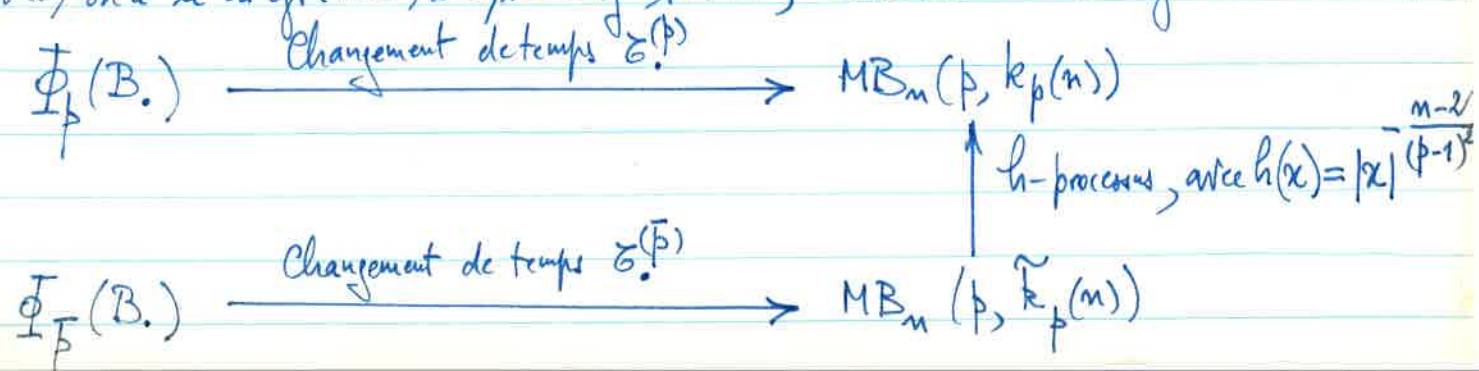 Changement de temps σ.^(p)
Φ_p(B.) ⟶ MB_n(p, k_p(n))
h-processus, avec h(x) = |x|^{-\frac{n-2}{(p-1)^2}}
Changement de temps σ.^(p̄)
Φ_p̄(B.) ⟶ MB_n(p, k̃_p(n))